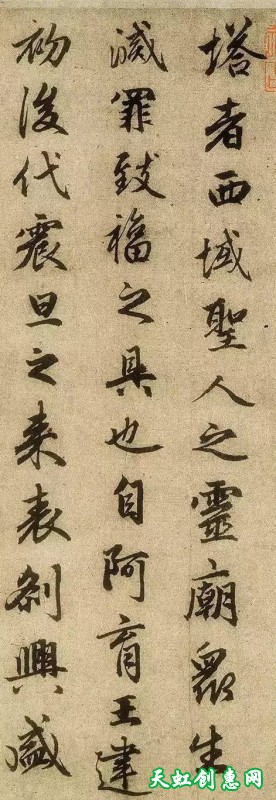 塔者西域聖人之靈廟眾生
滅罪致福之具也自阿育王建
初後代震旦之来表刹興盛
天虹创惠网